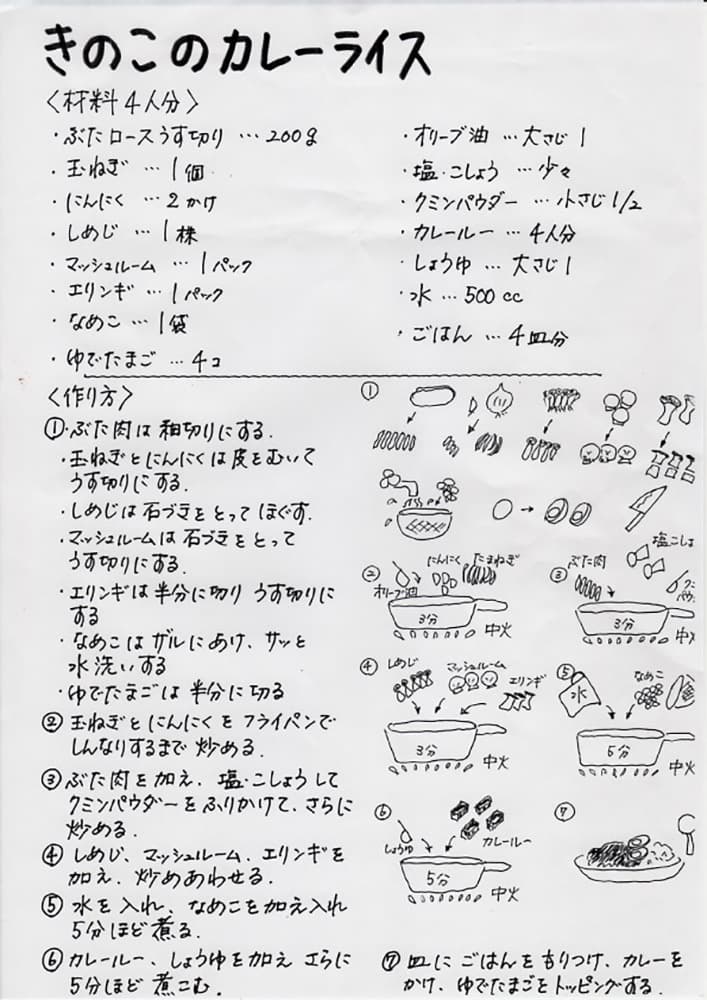 きのこのカレーライス
〈材料4人分〉
・ぶたロースうす切り…200g
・玉ねぎ…1個
・にんにく…2かけ
・しめじ…1株
・マッシュルーム…1パック
・エリンギ…1パック
・なめこ…1袋
・ゆでたまご…4コ
・オリーブ油…大さじ1
・塩・こしょう…少々
・クミンパウダー…小さじ1/2
・カレールー…4人分
・しょうゆ…大さじ1
・水…500cc
・ごはん…4皿分
〈作り方〉
①・ぶた肉は細切りにする.
・玉ねぎとにんにくは皮をむいて
うす切りにする.
・しめじは石づきをとってほぐす.
・マッシュルームは石づきをとって
うす切りにする.
・エリンギは半分に切りうす切りに
する
・なめこはザルにあけ、サッと
水洗いする
・ゆでたまごは半分に切る
②玉ねぎとにんにくをフライパンで
しんなりするまで炒める.
③ぶた肉を加え、塩・こしょうして
クミンパウダーをふりかけて、さらに
炒める.
④しめじ、マッシュルーム、エリンギを
加え、炒めあわせる.
⑤水を入れ、なめこを加え入れ
5分ほど煮る.
⑥カレールー、しょうゆを加えさらに
5分ほど煮こむ.
⑦皿にごはんをもりつけ、カレーを
かけ、ゆでたまごをトッピングする.
①
②
にんにく
たまねぎ
オリーブ油
3分
中火
③
ぶた肉
塩こしょ
ク
パウ
3分
中火
④
しめじ
マッシュルーム
エリンギ
3分
中火
⑤
水
なめこ
5分
中火
⑥
しょうゆ
カレールー
5分
中火
⑦